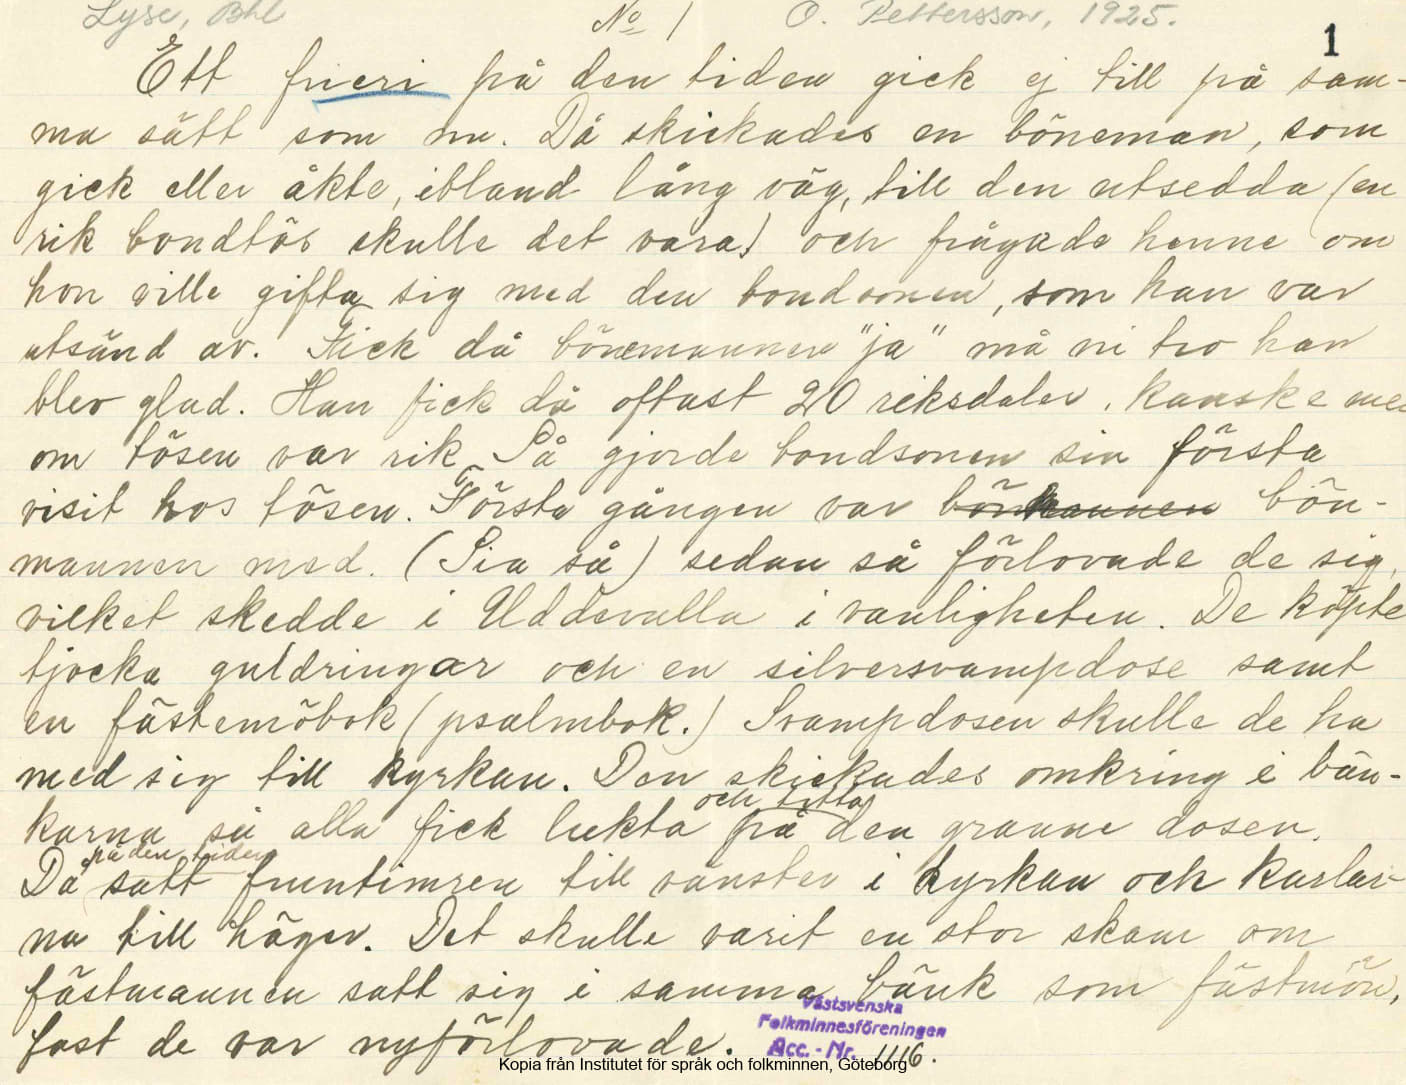 Lyse, Bhl No 1 O. Pettersson, 1925.
1
Ett frieri på den tiden gick ej till på sam-
ma sätt som nu. Då skickades en böneman, som
gick eller åkte, ibland lång väg, till den utsedda (en
rik bondtös skulle det vara) och frågade henne om
hon ville gifta sig med den bondsonen, som han var
utsänd av. Fick då bönemannen "ja" må ni tro han
blev glad. Han fick då oftast 20 riksdaler, kanske mer
om tösen var rik. Så gjorde bondsonen sin första
visit hos tösen. Första gången var bönmannen bön-
mannen med. (Sia så) sedan så förlovade de sig,
vilket skedde i Uddevalla i vanligheten. De köpte
tjocka guldringar och en silversvampdose samt
en fästemöbok (psalmbok.) Svampdosen skulle de ha
med sig till kyrkan. Den skickades omkring i bän-
karna så alla fick lukta och titta på den granne dosen.
Då på den tiden satt fruntimren till vänster i kyrkan och karlar-
na till höger. Det skulle varit en stor skam om
fästmannen satt sig i samma bänk som fästmön,
fast de var nyförlovade.
Västsvenska
Folkminnesföreningen
Acc. - Nr. 1116.
Kopia från Institutet för språk och folkminnen, Göteborg